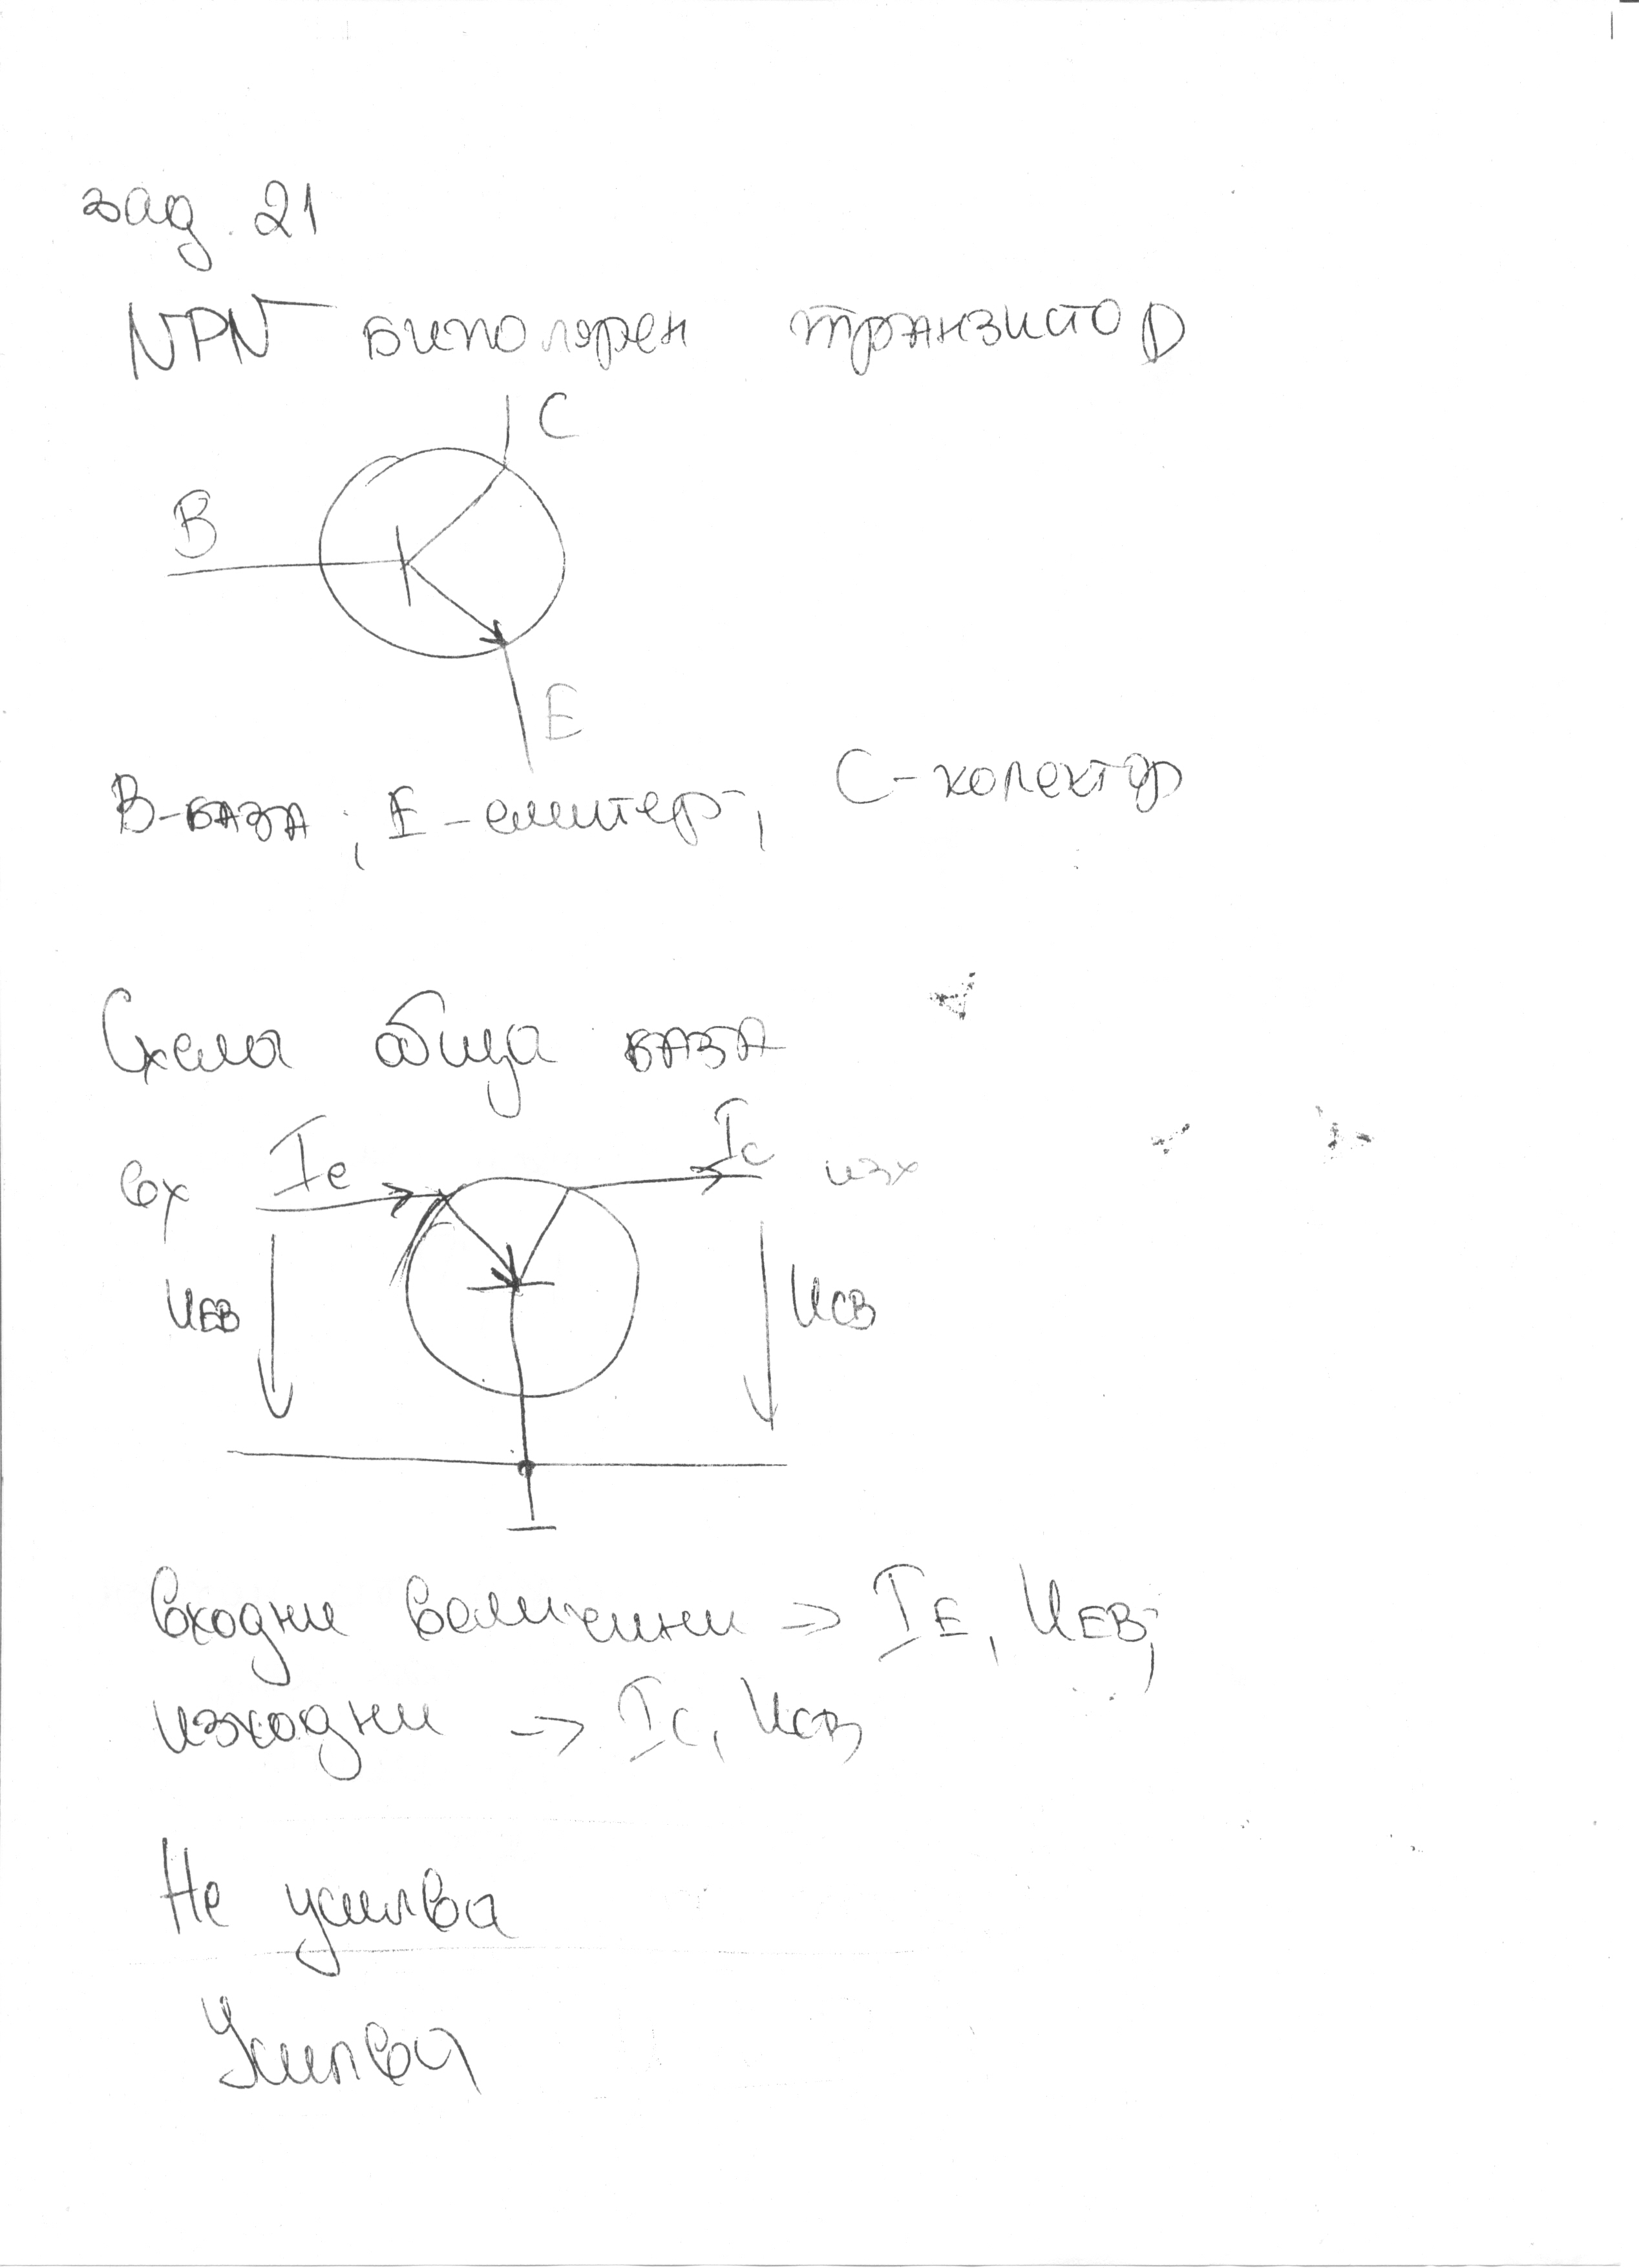 зад. 21
NPN биполярен транзистор
C
B
E
B-БАЗА; E-емитер; C-колектор
Схема обща БАЗА
вх Ie Ic изх
UEB UCB
Входни величини => IE, UEB;
изходни -> IC, UCB
Не усилва
Усилва